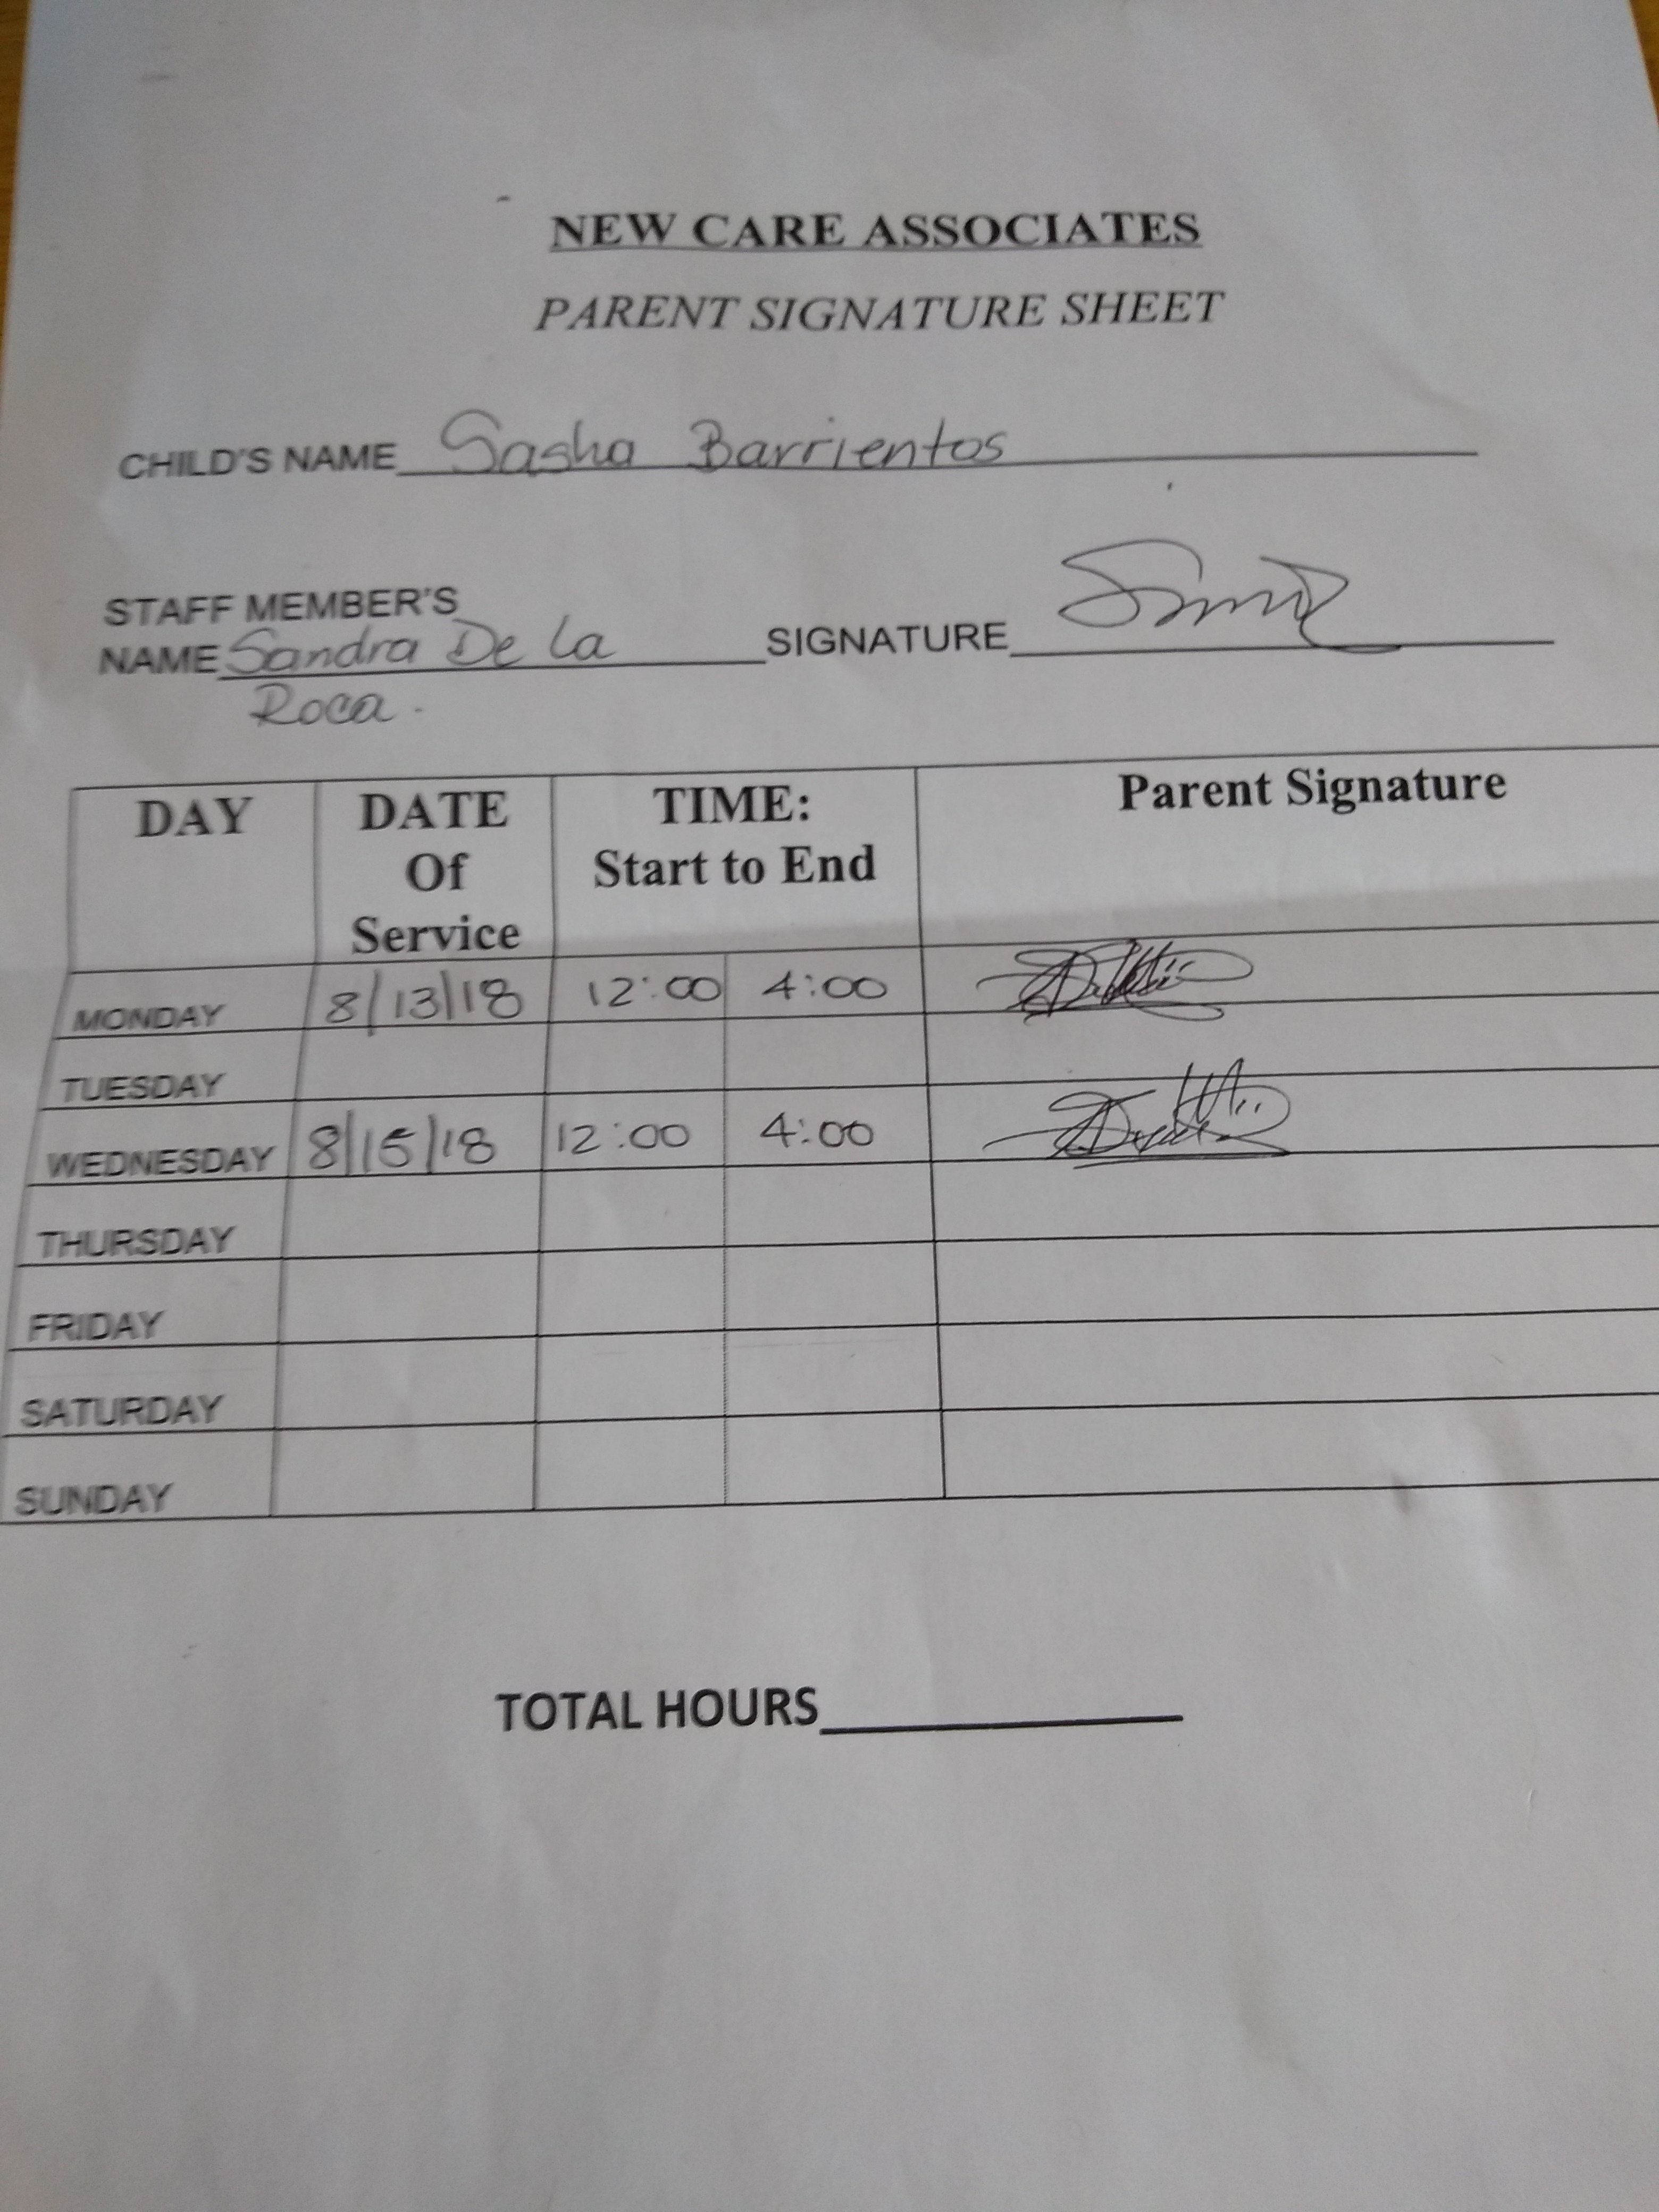 NEW CARE ASSOCIATES
PARENT SIGNATURE SHEET
CHILD'S NAME Sasha Barrientos
STAFF MEMBER'S
NAME Sandra De La SIGNATURE
Roca.
DAY DATE Of Service TIME: Start to End Parent Signature
MONDAY 8/13/18 12:00 4:00
TUESDAY
WEDNESDAY 8/15/18 12:00 4:00
THURSDAY
FRIDAY
SATURDAY
SUNDAY
TOTAL HOURS